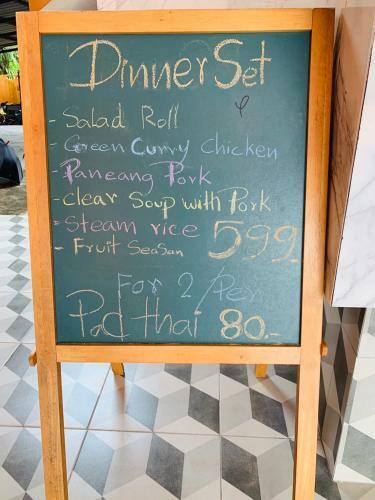 Dinner Set
- Salad Roll
- Green Curry Chicken
- Paneang Pork
- clear Soup with Pork
- Steam rice 599
- Fruit SeaSan
For 2/Per
Pad thai 80.-